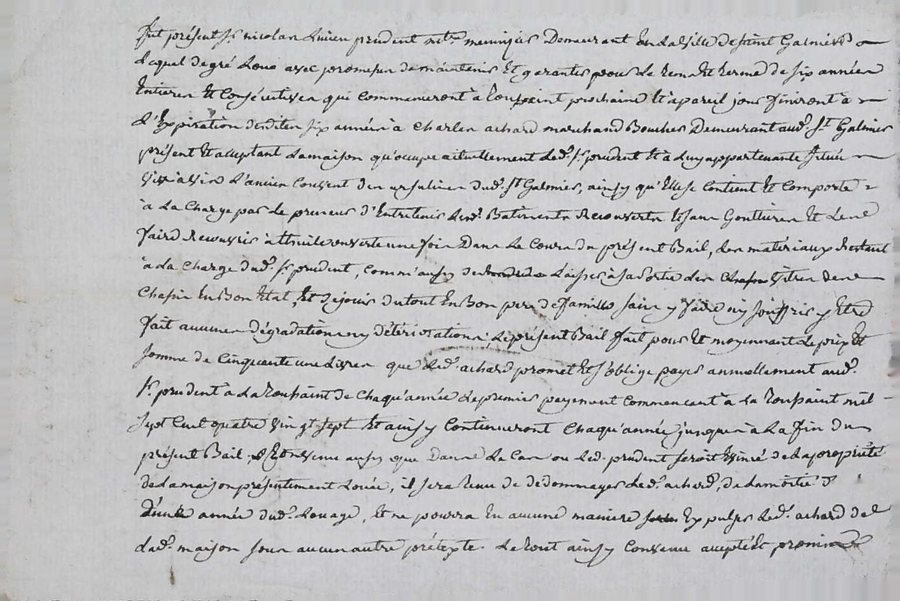 fut présent Sr nicolas Prudent mtre menuisier Demeurant En la Ville de saint Galmier
Lequel de gré Loue avec promesse de maintenir Et garantir pour Le tems Et terme de six années
Entieres Et Consécutives qui commenceront à Toussaint prochaine Et a pareil jour finiront à
L'Expiration desdites six années à Charles achard marchand Boucher Demeurant aud. St Galmier
présent Et acceptant La maison qu'occupe actuellement Led. Sr prudent Et à Luy appartenante située
vis à vis L'ancien Couvent des ursulines dud. St Galmier, ainsy qu'Elle se Contient Et Comporte
à La Charge par Le preneur d'Entretenir Lesd. Batiments Recouverts Et sans Gouttieres Et de Les
faire Recouvrir à thuile ouverte une fois Dans Le Cours du présent Bail, les matériaux Restant
à La Charge dud. Sr prudent, Comm'aussy de Laisser à la Sortie les Vitres de ces
Chassis En Bon Etat, Et de jouir du tout En Bon pere de famille sans y faire ny souffrir y Etre
fait aucunes dégradations ny déteriorations. Le présent Bail fait pour Et moyennant Le prix Et
somme de Cinquante une Livres que Led. achard promet Et s'oblige payer annuellement aud.
Sr prudent à La Toussaint de Chaqu'année Le premier payement Commencant à La Toussaint mil
Sept Cent quatre Vingt Sept Et ainsy Continueront Chaqu'année jusques à La fin du
présent Bail, Et Convenu aussy que Dans Le Cas ou Led. prudent seroit Evincé de La propriété
de La maison présentement Louée, il sera tenu de dedommager Led. achard, de La moitié
d'une année dud. Louage, Et ne pourra En aucune maniere Expulser Led. achard de
Lad. maison sous aucun autre prétexte. Le tout ainsy Convenu accepté Et promis